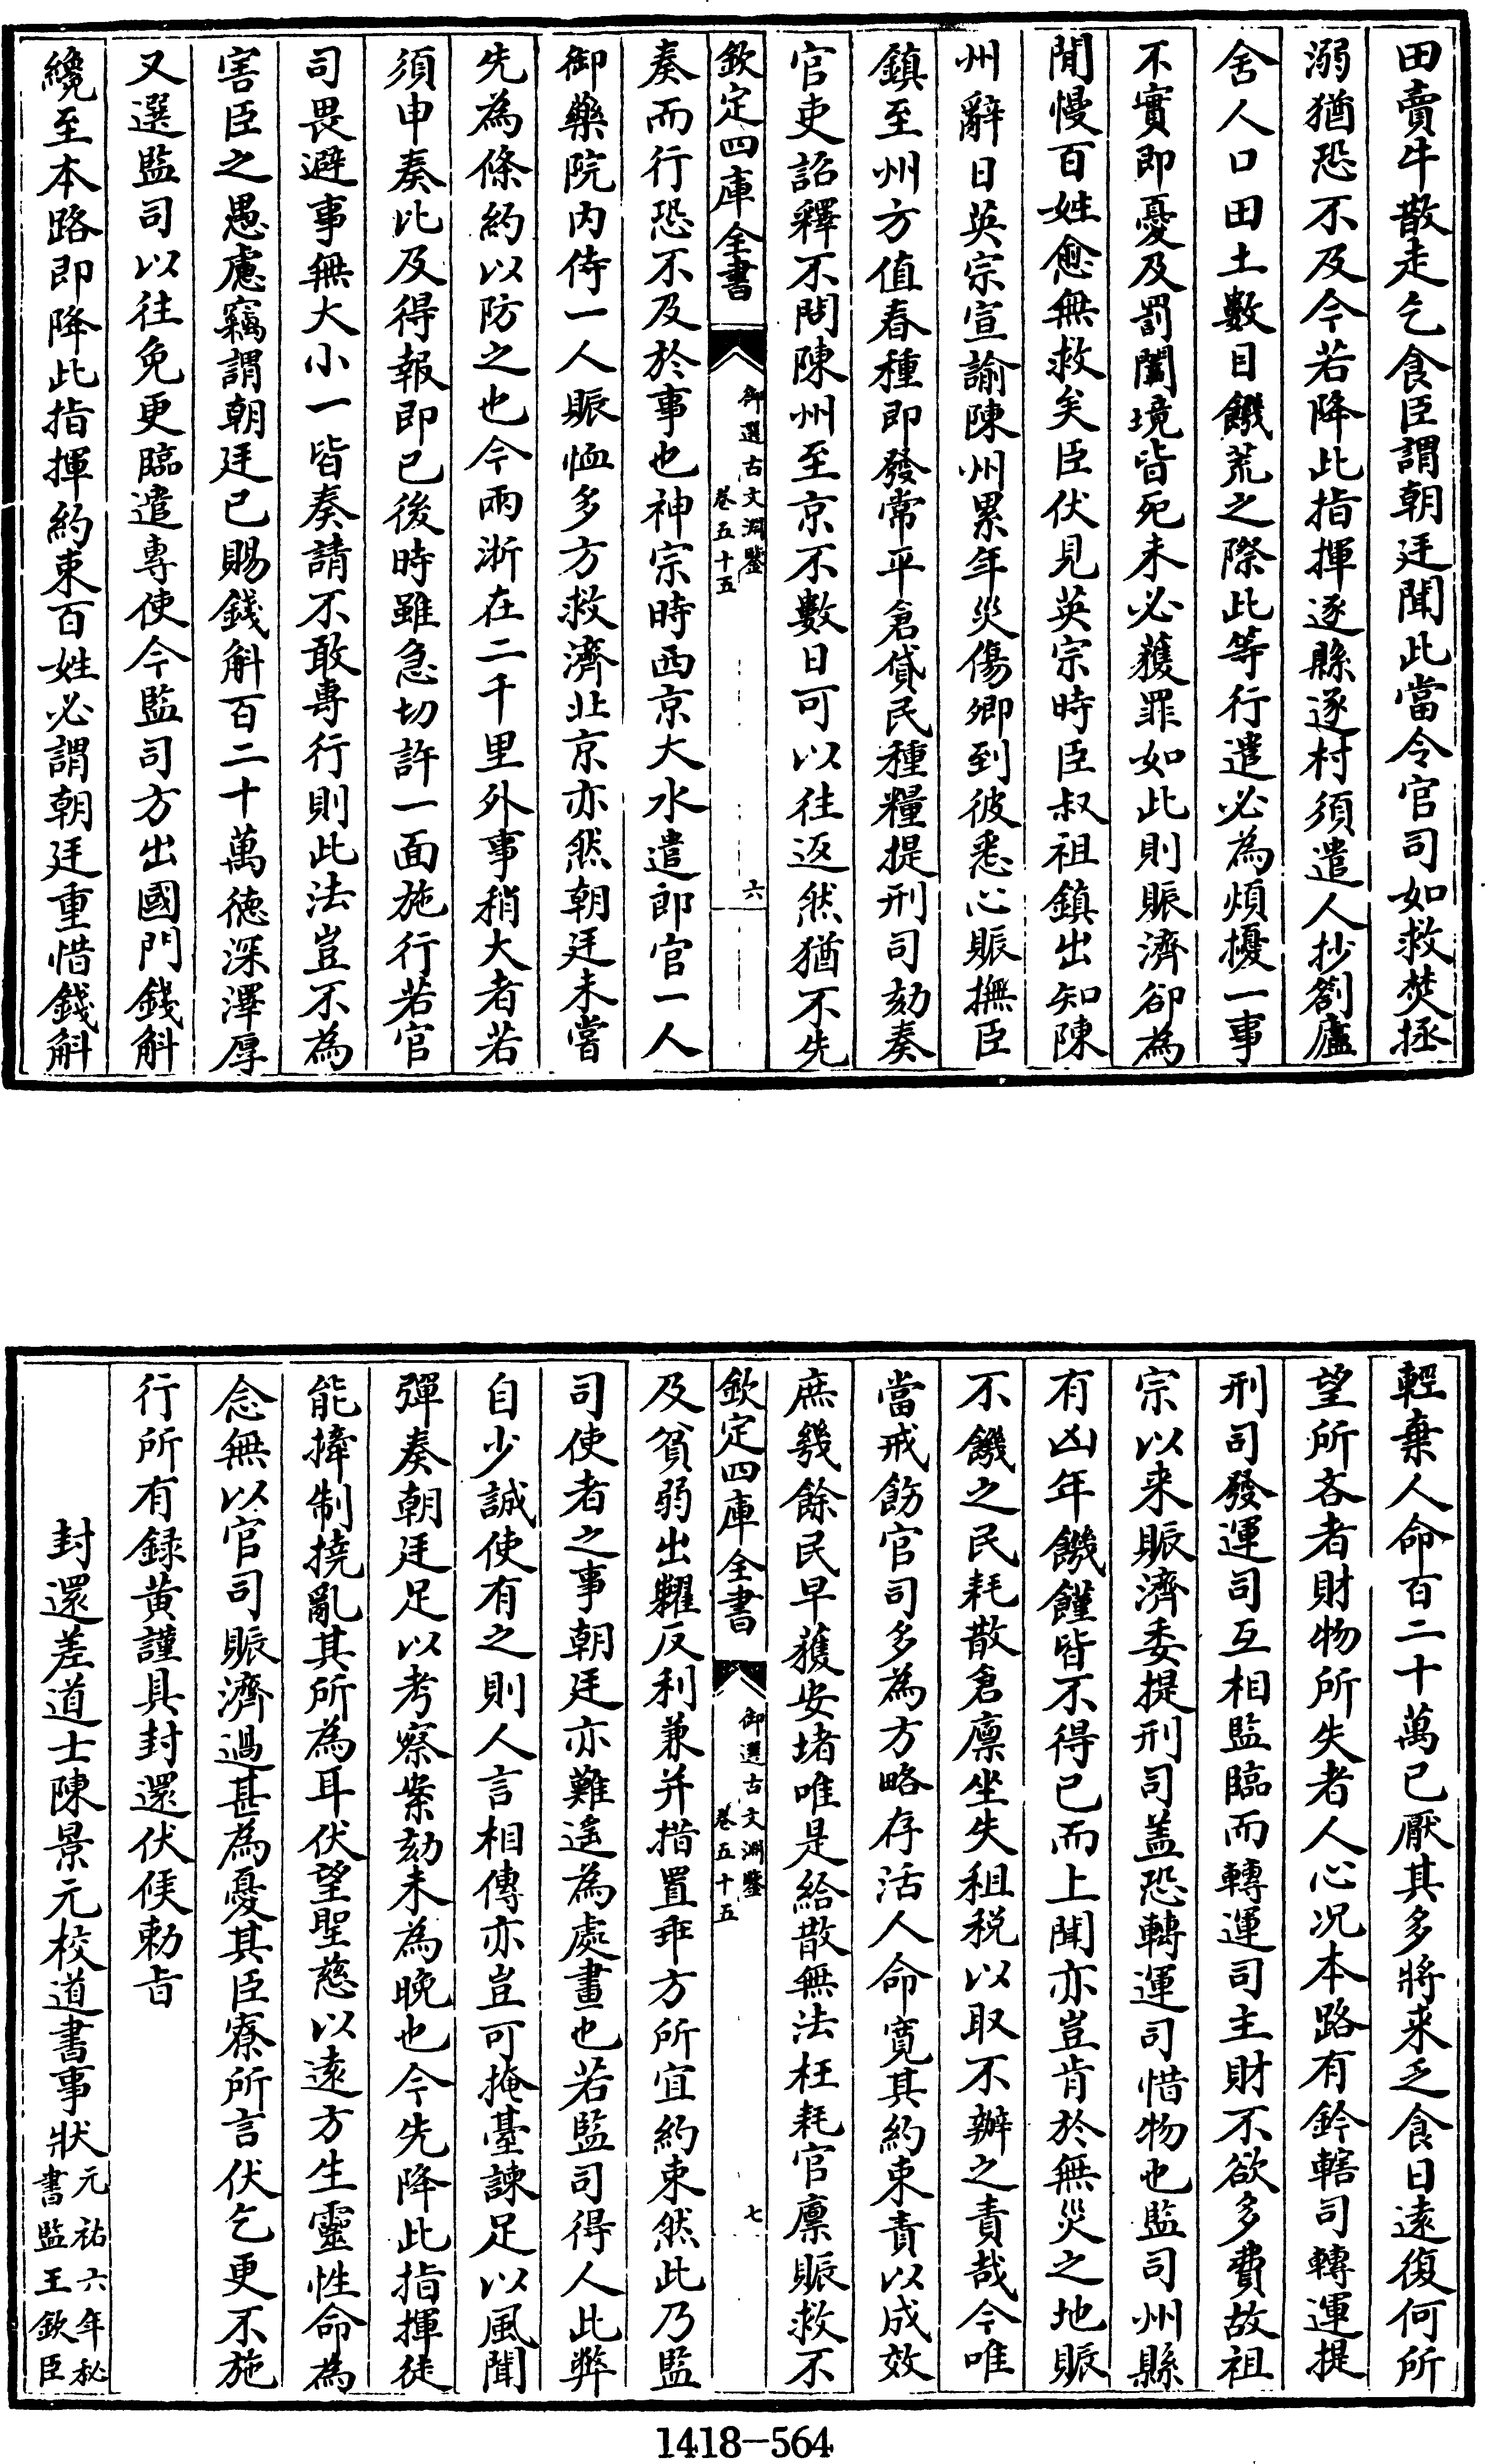 田賣牛散走乞食臣謂朝廷聞此當令官司如救焚拯
溺猶恐不及今若降此指揮逐縣逐村須遣人抄劄廬
舍人口田土數目饑荒之際此等行遣必為煩擾一事
不實即憂及罰闔境皆死未必獲罪如此則賑濟卻為
閒慢百姓愈無救矣臣伏見英宗時臣叔祖鎮出知陳
州辭日英宗宣諭陳州累年災傷卿到彼悉心賑撫臣
鎮至州方值春種即發常平倉貸民種糧提刑司劾奏
官吏詔釋不問陳州至京不數日可以往返然猶不先
欽定四庫全書
御選古文淵鑒
卷五十五
六
奏而行恐不及於事也神宗時西京大水遣郎官一人
御藥院內侍一人賑恤多方救濟北京亦然朝廷未嘗
先為條約以防之也今兩浙在二千里外事稍大者若
須申奏比及得報即已後時雖急切許一面施行若官
司畏避事無大小一皆奏請不敢專行則此法豈不為
害臣之愚慮竊謂朝廷已賜錢斛百二十萬德深澤厚
又選監司以往免更臨遣專使今監司方出國門錢斛
纔至本路即降此指揮約束百姓必謂朝廷重惜錢斛
輕棄人命百二十萬已厭其多將来乏食日遠復何所
望所吝者財物所失者人心况本路有鈐轄司轉運提
刑司發運司互相監臨而轉運司主財不欲多費故祖
宗以来賑濟委提刑司蓋恐轉運司惜物也監司州縣
有凶年饑饉皆不得已而上聞亦豈肯於無災之地賑
不饑之民耗散倉廪坐失租税以取不辦之責哉今唯
當戒飭官司多為方略存活人命寛其約束責以成效
庶幾餘民早獲安堵唯是給散無法枉耗官廪賑救不
欽定四庫全書
御選古文淵鑒
卷五十五
七
及貧弱出糶反利兼并措置乖方所宜約束然此乃監
司使者之事朝廷亦難遥為處畫也若監司得人此弊
自少誠使有之則人言相傳亦豈可掩臺諫足以風聞
彈奏朝廷足以考察案劾未為晩也今先降此指揮徒
能撁制撓亂其所為耳伏望聖慈以遠方生靈性命為
念無以官司賑濟過甚為憂其臣寮所言伏乞更不施
行所有録黄謹具封還伏候勅旨
封還差道士陳景元校道書事狀元祐六年秘
書監王欽臣
1418-564